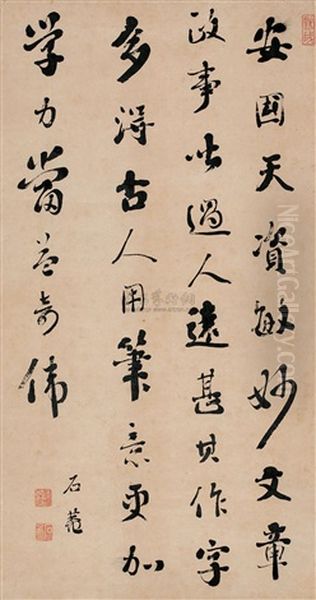 安国天資敏妙文章
政事皆過人遠甚其作字
多得古人用筆意更加
学力當益奇偉
石菴
NiceArtGallery.com